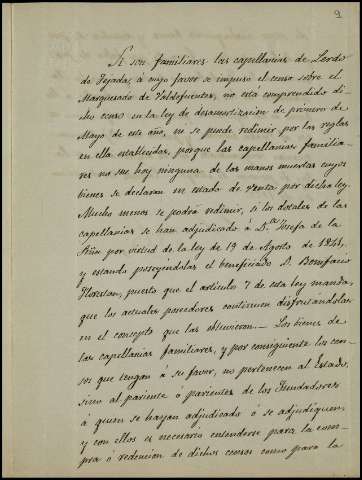 9
Si son familiares las capellanias de Lerdo
de Tejada, á cuyo favor se impuso el censo sobre el
Marquesado de Valdefuentes, no está comprendido di-
cho censo en la ley de desamortizacion de primero de
Mayo de este año, ni se puede redimir por las reglas
en ella establecidas, porque las capellanias familia-
res no son hoy ninguna de las manos muertas cuyos
bienes se declaran en estado de venta por dicha ley.
Mucho menos se podrá redimir, si los dotales de las
capellanias se han adjudicado á D.ª Josefa de la
Peña por virtud de la ley de 19 de Agosto de 1841,
y estando poseyendolas el beneficiado D. Bonifacio
puesto que el articulo 7 de esta ley manda,
que los actuales poseedores continuen disfrutandolas
en el concepto que las obtuvieron. Los bienes de
las capellanias familiares, y por consiguiente los cen-
sos que tengan á su favor, no pertenecen al Estado,
sino al pariente ó parientes de los Fundadores
á quien se hayan adjudicado ó se adjudiquen,
y con ellos es necesario entenderse para la com-
pra ó redencion de dichos censos como para la